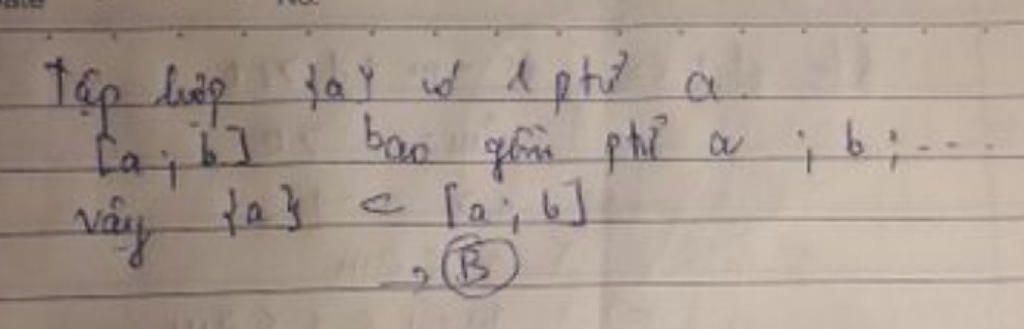 Tập hợp {a} có 1 ptử a.
[a; b] bao gồm ptử a ; b ; ...
vậy {a} ⊂ [a; b]
→ B